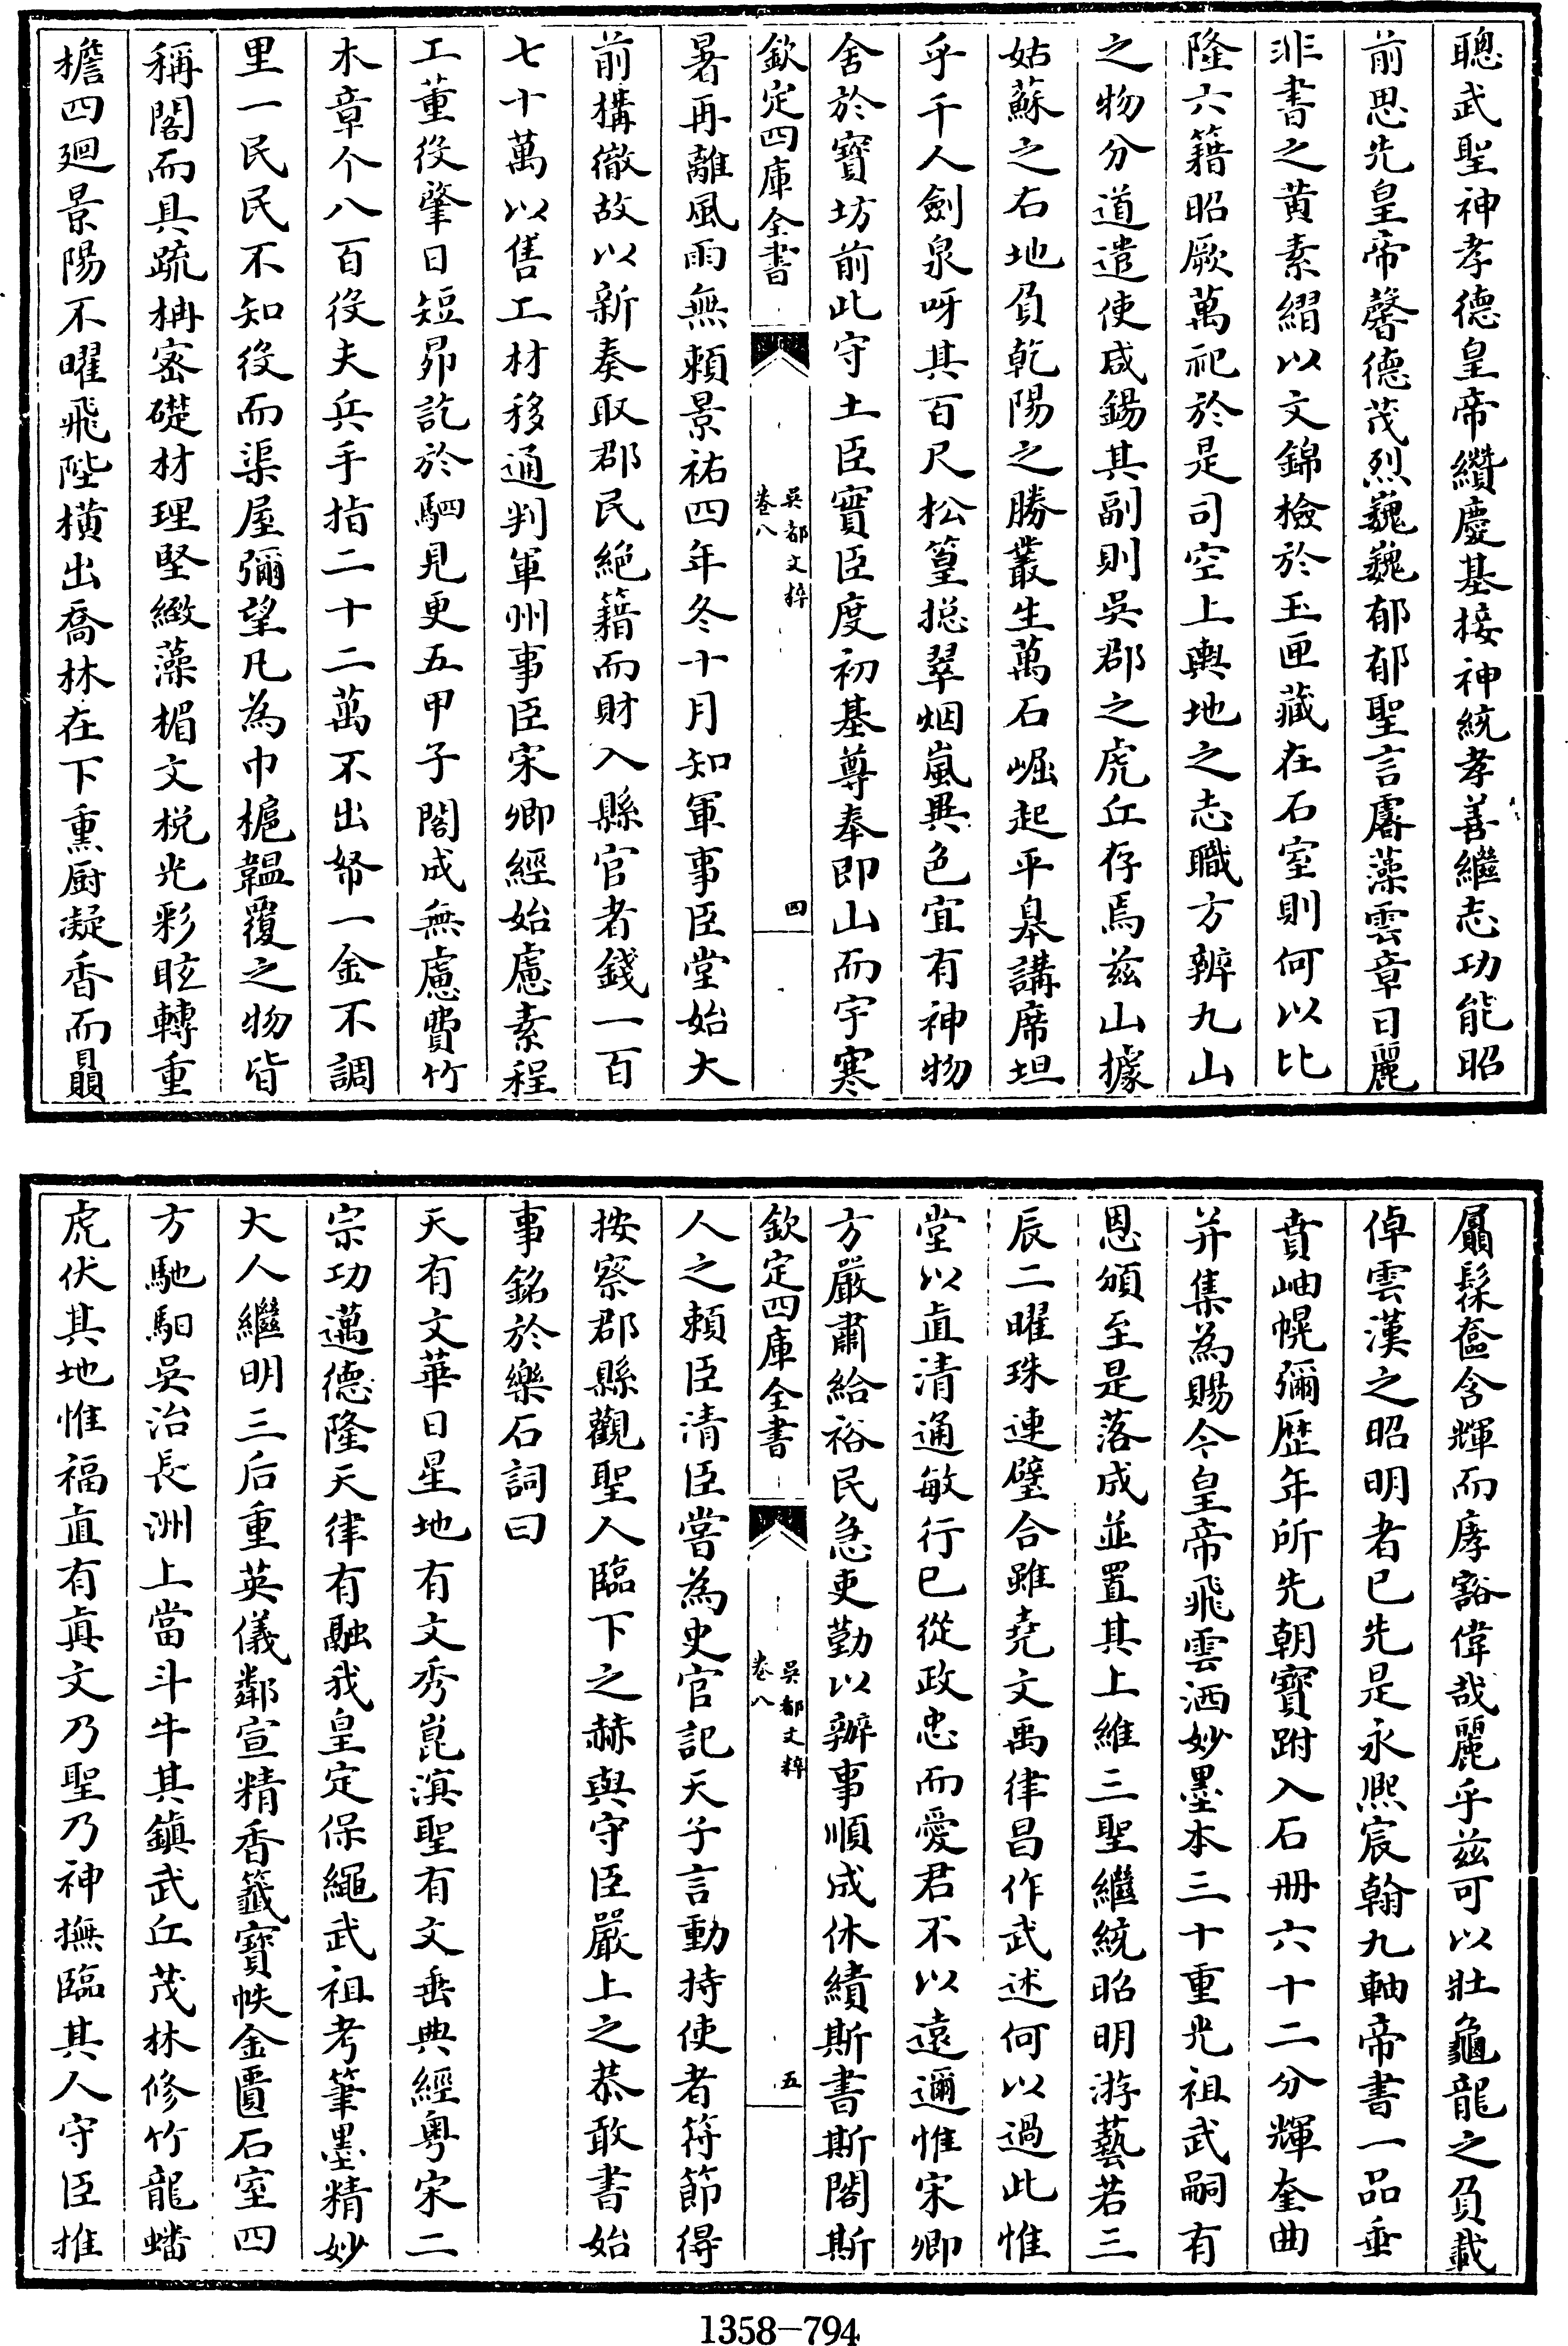 聰武聖神孝德皇帝纘慶基接神統孝善繼志功能昭
前思先皇帝馨德茂烈巍巍郁郁聖言䨇藻雲章日麗
非書之黄素縚以文錦檢於玉匣藏在石室則何以比
隆六籍昭厥萬祀於是司空上輿地之志職方辨九山
之物分道遣使咸錫其副則吳郡之虎丘存焉兹山據
姑蘇之右地負乾陽之勝叢生萬石崛起平皋講席坦
乎千人劍泉呀其百尺松篁摠翠烟嵐異色宜有神物
舍於寶坊前此守土臣寶臣度初基尊奉即山而宇寒
欽定四庫全書
吳都文粹
卷八
四
暑再離風雨無賴景祐四年冬十月知軍事臣堂始大
前構徹故以新奏取郡民絶籍而財入縣官者錢一百
七十萬以售工材移通判軍州事臣宋卿經始慮素程
工董役肇日短昴訖於駟見更五甲子閣成無慮費竹
木章个八百役夫兵手指二十二萬不出帑一金不調
里一民民不知役而渠屋彌望凡為巾槴韞覆之物皆
稱閣而具疏柟宻礎材理堅緻藻楣文棁光彩眩轉重
檐四廻景陽不曜飛陛横出喬林在下熏厨凝香而贔
屭髹奩含輝而㢒豁偉哉麗乎兹可以壯龜龍之負載
倬雲漢之昭明者已先是永熙宸翰九軸帝書一品垂
賁岫幌彌歴年所先朝寶跗入石冊六十二分輝奎曲
并集為賜今皇帝飛雲洒妙墨本三十重光祖武嗣有
恩頒至是落成並置其上維三聖繼統昭明游藝若三
辰二曜珠連璧合雖堯文禹律昌作武述何以過此惟
堂以直清通敏行已從政忠而愛君不以遠邇惟宋卿
方嚴肅給裕民急吏勤以辦事順成休績斯書斯閣斯
欽定四庫全書
吳都文粹
卷八
五
人之賴臣清臣嘗為史官記天子言動持使者符節得
按察郡縣觀聖人臨下之赫與守臣嚴上之恭敢書始
事銘於樂石詞曰
天有文華日星地有文秀崑滇聖有文垂典經粤宋二
宗功邁德隆天律有融我皇定保繩武祖考筆墨精妙
大人繼明三后重英儀鄰宣精香籤寶帙金匱石室四
方馳馹吳治長洲上當斗牛其鎮武丘茂林修竹龍蟠
虎伏其地惟福直有真文乃聖乃神撫臨其人守臣推
1358-794